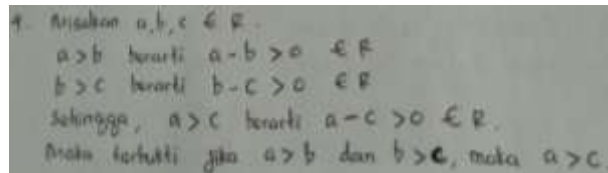 4. Misalkan a, b, c ∈ R.
a > b berarti a - b > 0 ∈ R
b > c berarti b - c > 0 ∈ R
Sehingga, a > c berarti a - c > 0 ∈ R.
Maka terbukti jika a > b dan b > c, maka a > c